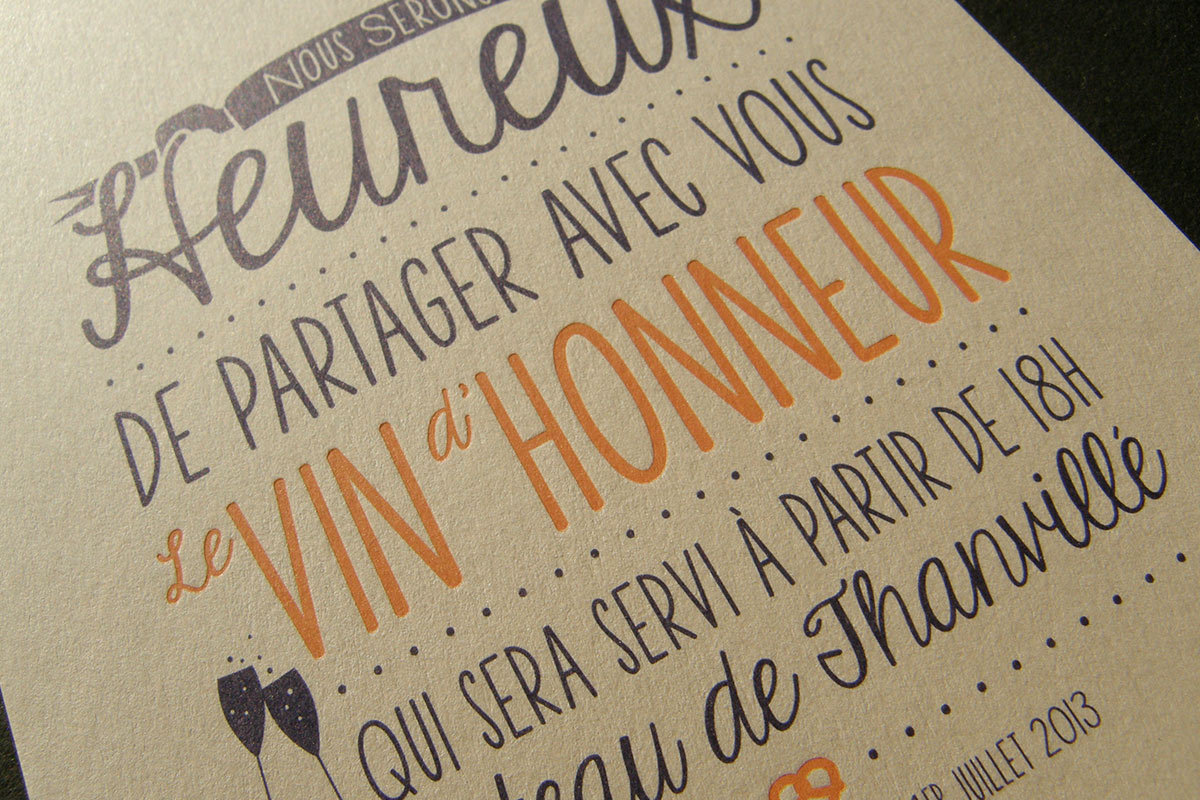 NOUS SERONS
Heureux
DE PARTAGER AVEC VOUS
Le VIN d'HONNEUR
QUI SERA SERVI À PARTIR DE 18H
de Thanvillé
JUILLET 2013